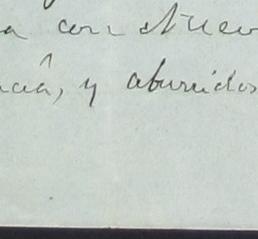 a con Nuev
ncia, y aburridos